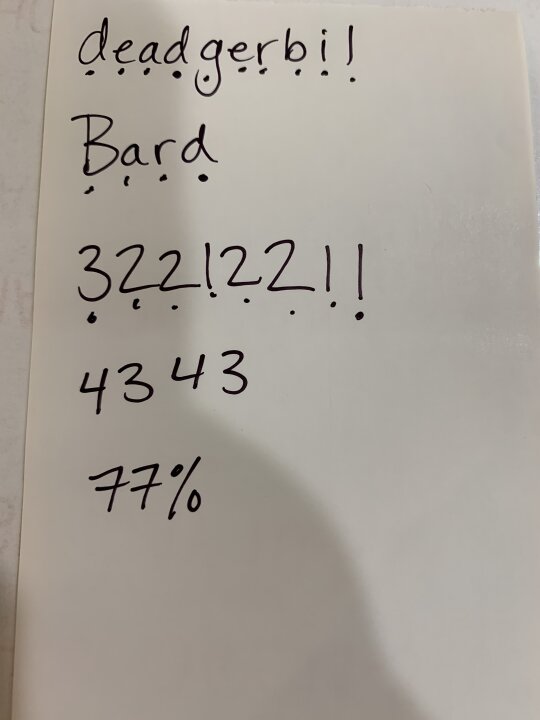 deadgerbil
Bard
32212211
4343
77%